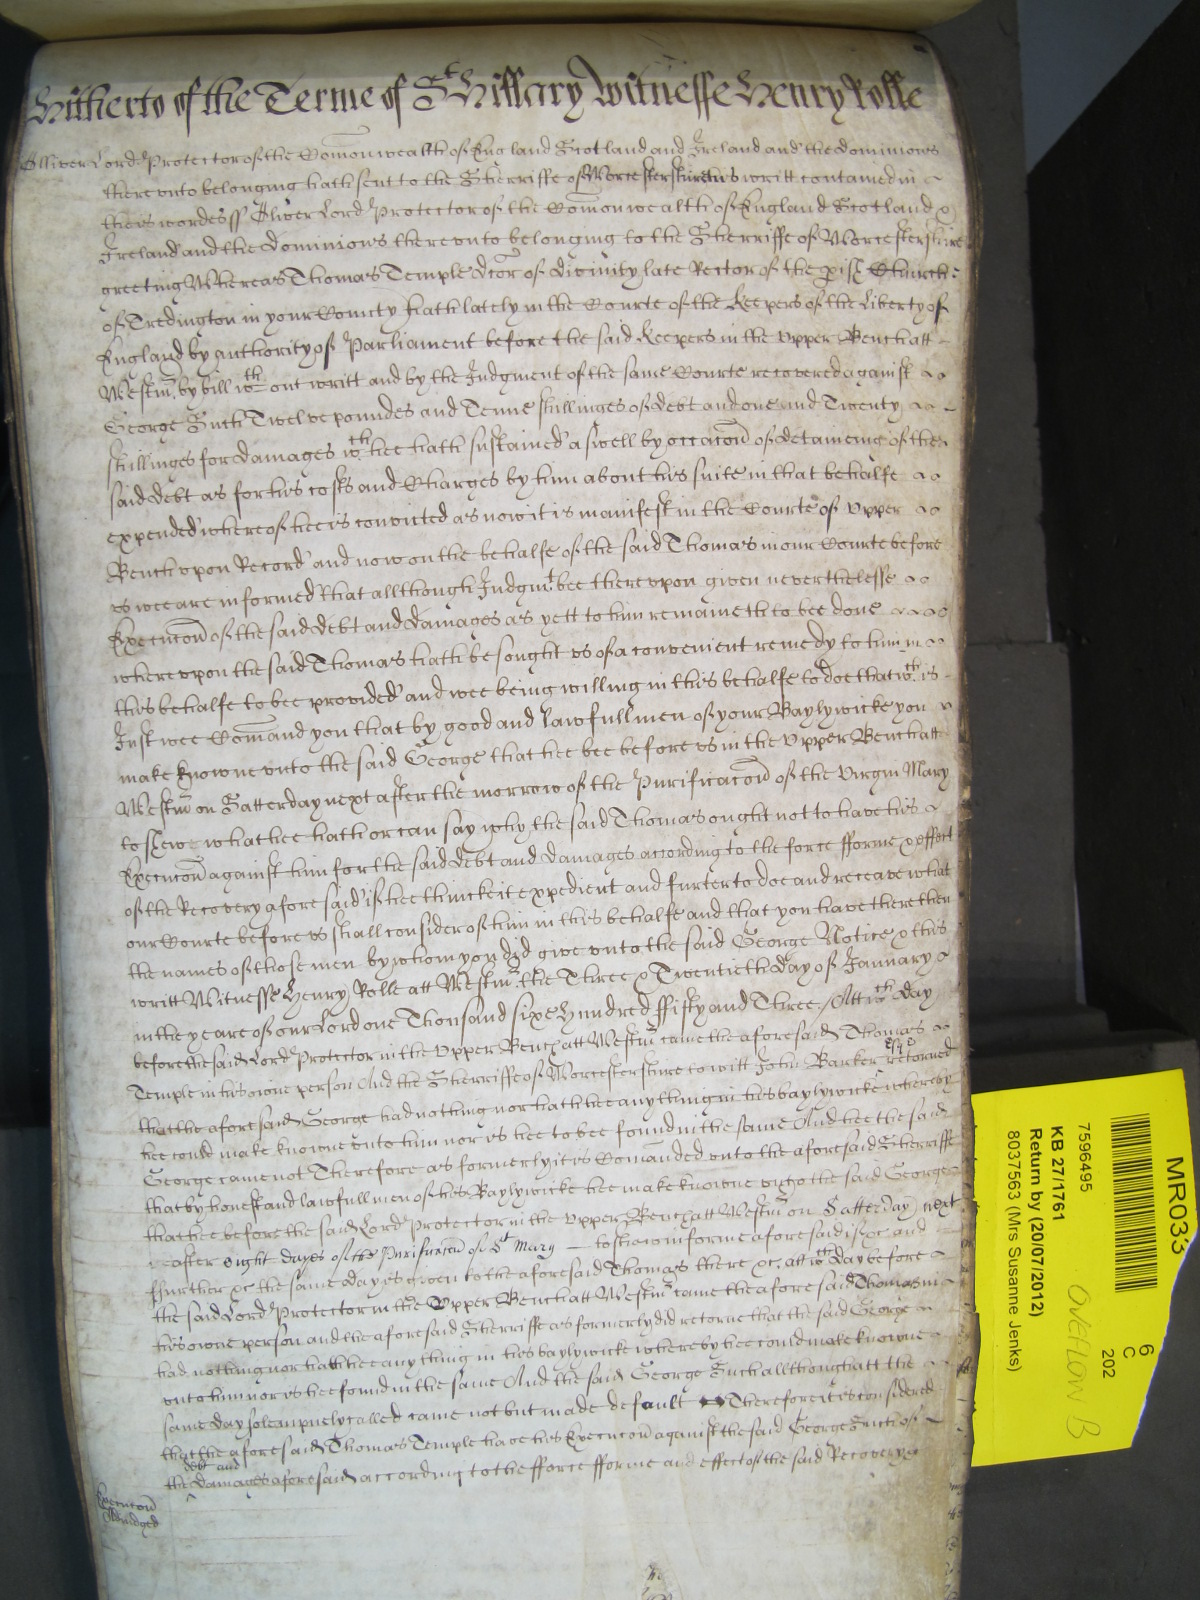 Hitherto of the Terme of St Hillary Witnesse Henry Rolle
Olliver Lord Protector of the Comonwealth of England Scotland and Ireland and the dominions
there vnto belonging hath sent to the Sherriffe of Worcestershire his writt contained in
theis wordes ss Oliver Lord Protector of the Comonwealth of England Scotland &
Ireland and the Dominions therevnto belonging to the Sherriffe of Worcestershire
greeting Whereas Thomas Temple dcor of divinity late Rector of the pish Church
of Tredington in your County hath lately in the Courte of the Keepers of the Liberty of
England by authority of Parliament before the said Keepers in the Vpper Bench att
Westm by bill wth out writt and by the Judgment of the same Courte recovered against
George Such Twelve poundes and Tenne shillinges of debt and one and Twenty
shillinges for damages wth hee hath sustained aswell by occacon of detaineing of the
said debt as for his costs and Charges by him about his suite in that behalfe
expended whereof hee is convicted as now it is manifest in the Courte of Vpper
Bench vpon Record and now on the behalfe of the said Thomas in our Courte before
vs wee are informed that allthough Judgmt bee therevpon given neverthelesse
Execucon of the said debt and damages as yett to him remaineth to bee done
wherevpon the said Thomas hath besought vs of a convenient remedy to him in
this behalfe to bee provided and wee being willing in this behalfe to doe that wch is
Just wee Comand you that by good and lawfull men of your Baylywicke you
make knowne vnto the said George that hee bee before vs in the Vpper Bench att
Westm on Satterday next after the morrow of the Purificacon of the Virgin Mary
to shewe what hee hath or can say why the said Thomas ought not to have his
Execucon against him for the said debt and damages according to the force fforme & effect
of the Recovery aforesaid if hee thincke it expedient and furter to doe and receave what
our Courte before vs shall consider of him in this behalfe and that you have there then
the names of those men by whom you did give vnto the said George Notice & this
writt Witnesse Henry Rolle att Westm the Three & Twentieth day of January
in the yeare of our Lord one Thousand sixe hundred ffifty and Three / Att wch day
before the said Lord Protector in the Vpper Bench att Westm came the aforesaid Thomas
Temple in his owne person And the Sherriffe of Worcestershire to witt John Barker esqr retorned
that the aforesaid George had nothing nor hath hee any thing in his baylywicke whereby
hee could make knowne vnto him nor is hee to bee found in the same And hee the said
George came not Therefore as formerly it is Comanded vnto the aforesaid Sherriffe
that by honest and lawfull men of his Baylywicke hee make knowne vnto the said George
that hee before the said Lord Protector in the Vpper Bench att Westm on Satterday next
after eight dayes of the Purificacon of St Mary to shew in forme aforesaid if &c and
ffurther &c the same day is given to the aforesaid Thomas there &c att wch day before
the said Lord Protector in the Vpper Bench att Westm came the aforesaid Thomas in
his owne person and the aforesaid Sherriffe as formerly did retorne that the said George
had nothing nor hath hee any thing in his baylywicke whereby hee could make knowne
vnto him nor is hee found in the same And the said George Such allthough att the
same day solempnely called came not but made default Therefore it is considered
that the aforesaid Thomas Temple have his Execucon against the said George Such of
debt and
the damages aforesaid according to the fforce fforme and effect of the said Recovery &c
Execucon
Adiudged
MR033
7596495
6
C
202
KB 27/1761
Return by (20/07/2012)
8037563 (Mrs Susanne Jenks)
OVERFLOW B